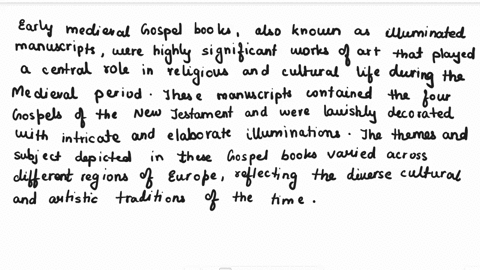 Early medieval Gospel books, also known as illuminated
manuscripts, were highly significant works of art that played
a central role in religious and cultural life during the
Medieval period. These manuscripts contained the four
Gospels of the New Testament and were lavishly decorated
with intricate and elaborate illuminations. The themes and
subject depicted in these Gospel books varied across
different regions of Europe, reflecting the diverse cultural
and artistic traditions of the time.